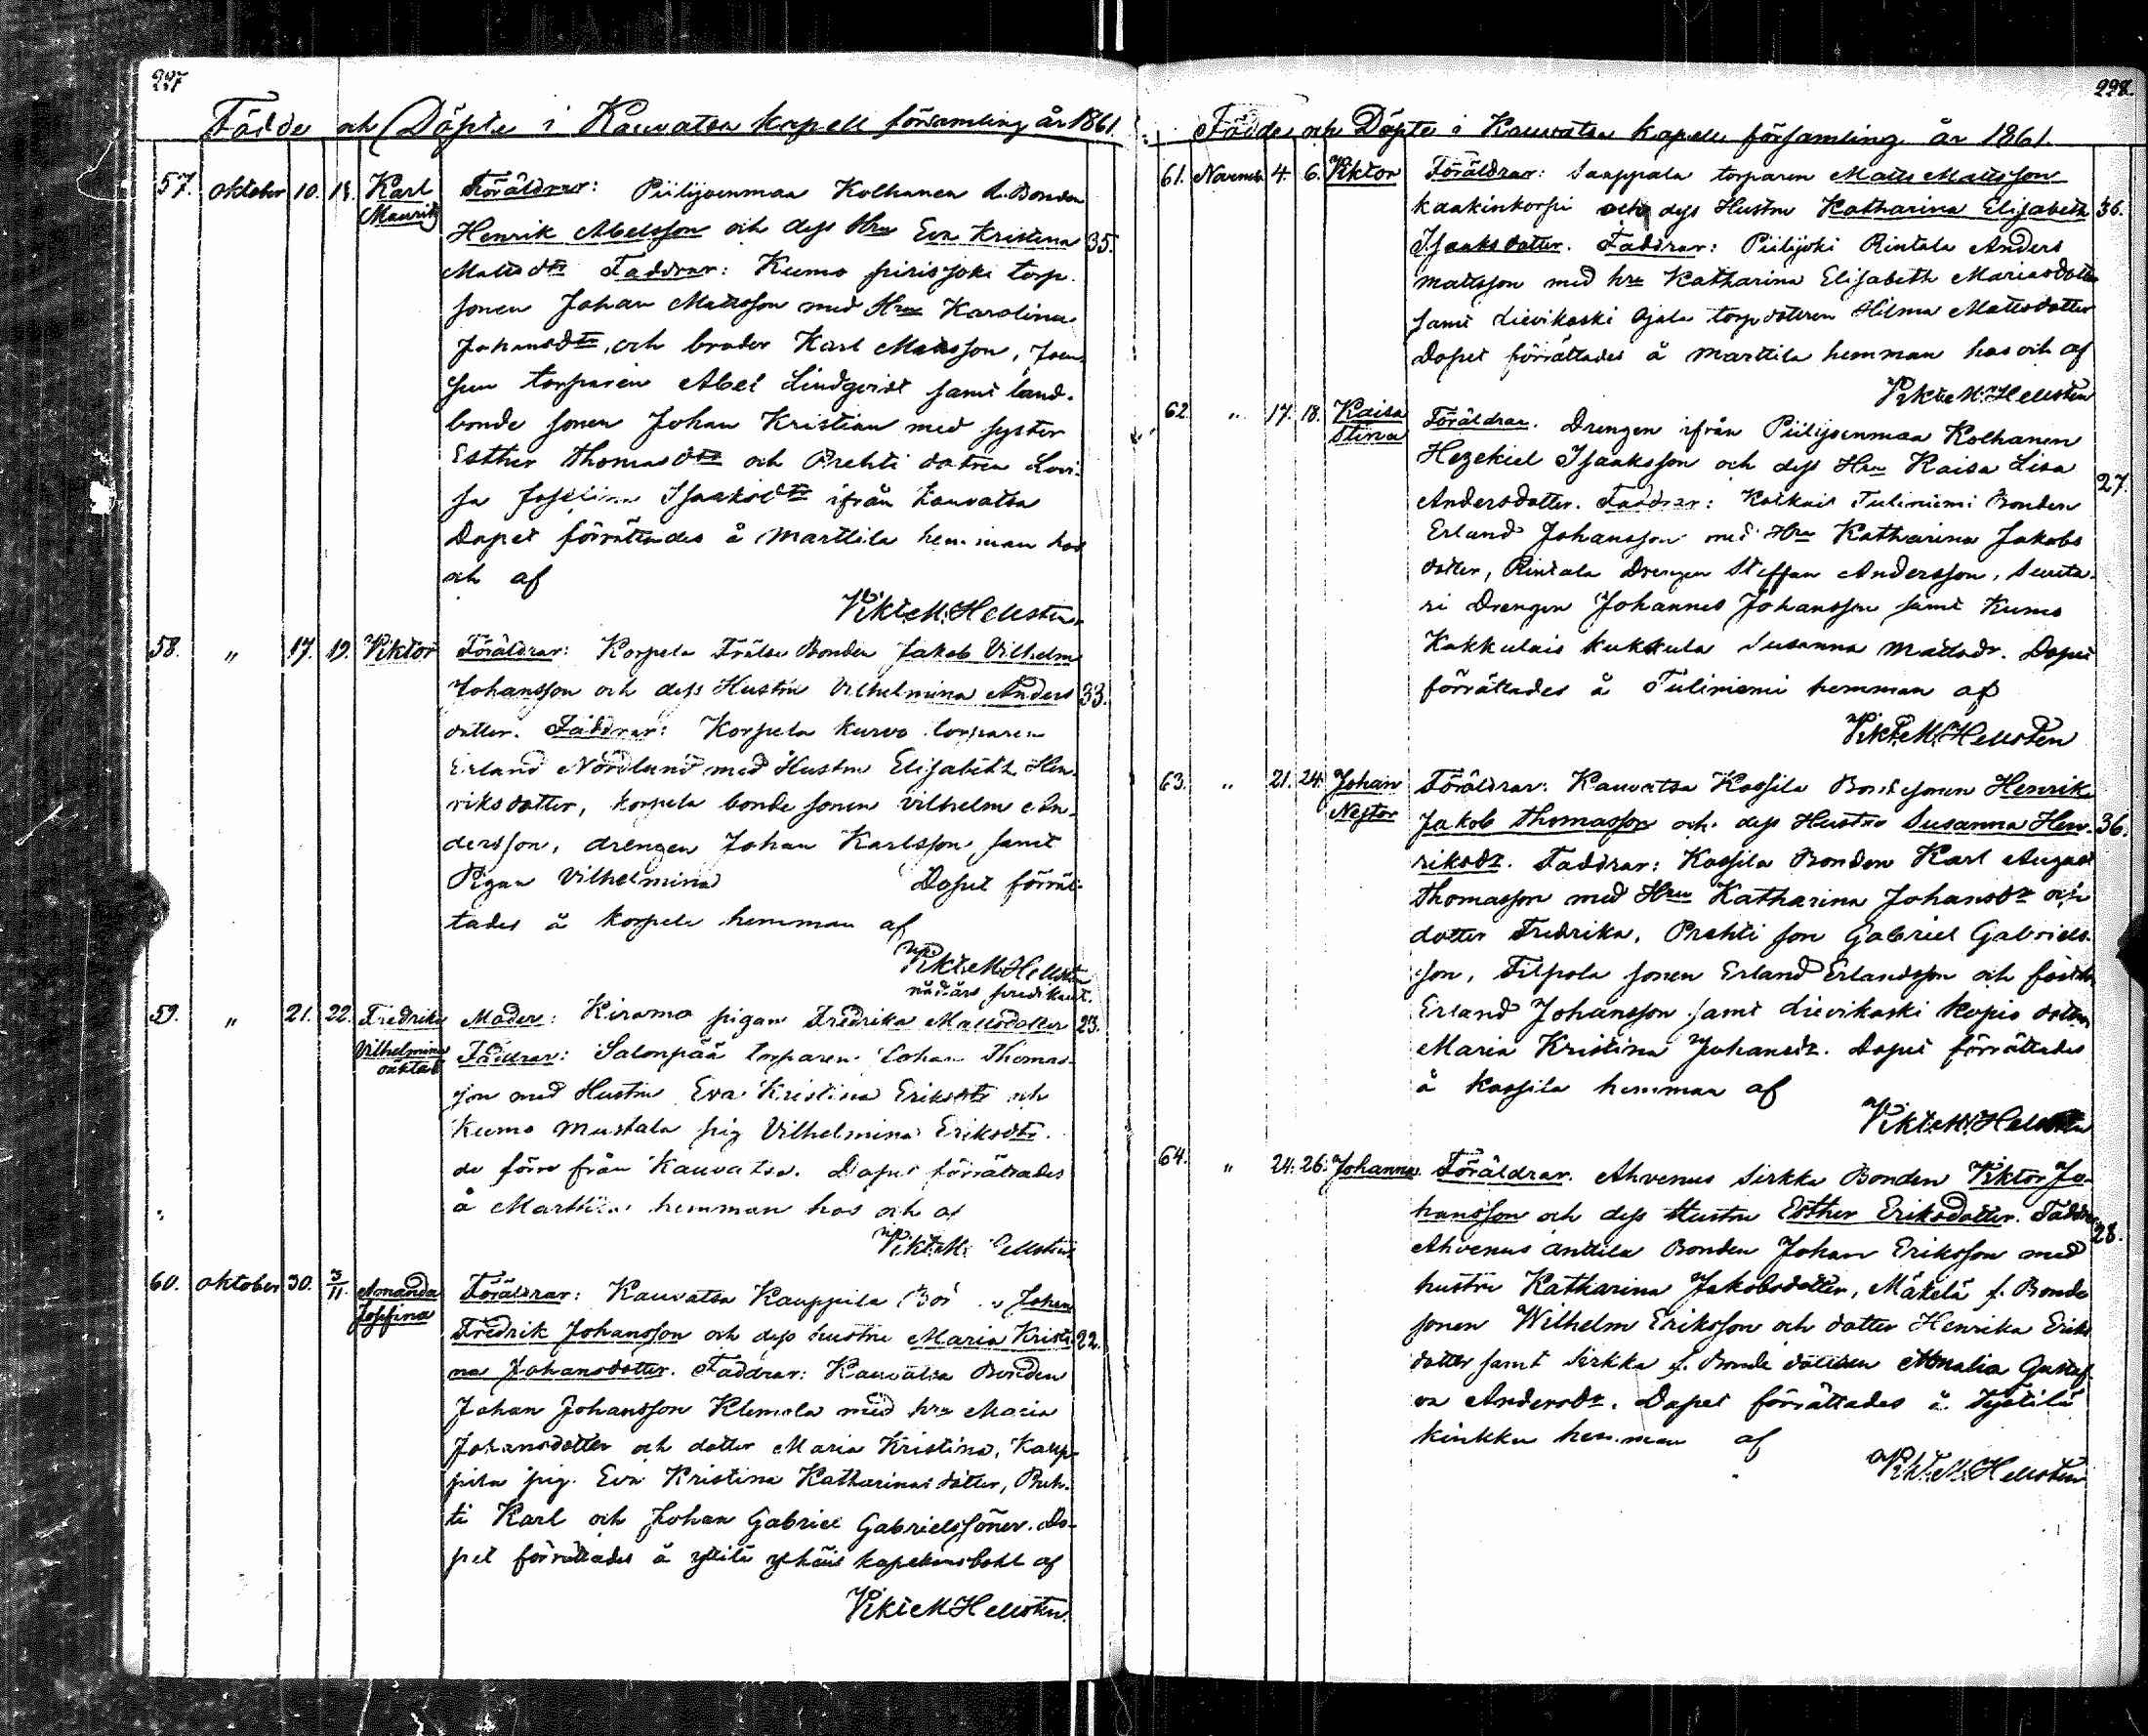 227
Födde och Döpte i Kauvatsa kapell församling år 1861.
57. oktober 10. 13. Karl Mauritz Föräldrar: Piilijoenmaa Kolhanen L. Bonden
Henrik Abelsson och dess Hru Eva Kristina 35.
Mattsdtr Faddrar: Kumo pirisjoki torp.
sonen Johan Mattsson med Hru Karolina
Johansdtr, och broder Karl Matsson,
torparen Abel Lindqvist samt land-
bonde sonen Johan Kristian med syster
Esther Thomasdtr och Prehti dotren Lovi-
sa Josefina Isaaksdtr ifrån Kauvatsa
Dopet förrättades å Marttila hemman hos
och af
Vikt. M. Hellsten.
58. " 17. 19. Viktor Föräldrar: Korpela Frälse Bonden Jakob Vilhelm
Johansson och dess Hustru Vilhelmina Anders 33.
dotter. Faddrar: Korpela Kurvo torparen
Erland Nordlund med Hustru Elisabeth Hen-
riksdotter, korpela bonde sonen Vilhelm An-
dersson, drengen Johan Karlsson samt
Pigan Vilhelmina Dopet förrät-
tades å korpela hemman af
Vikt. M. Hellsten
nådårs predikant.
59. " 21. 22. Fredrika Vilhelmina oäkta Moder: Kiramo pigan Fredrika Mattsdotter 23.
Faddrar: Salonpää torparen Johan Thomas-
son med Hustru Eva Kristina Eriksdtr och
Kumo Mustala pig Vilhelmina Eriksdtr.
de förre från Kauvatsa. Dopet förrättades
å Marttila hemman hos och af
Vikt. M. Hellsten
60. oktober 30. 3/11 Amanda Josefina Föräldrar: Kauvatsa Kauppila Johan
Fredrik Johansson och dess hustru Maria Kristi- 22.
na Johansdotter. Faddrar: Kauvatsa Bonden
Johan Johansson Klemola med hru Maria
Johansdotter och dotter Maria Kristina, Kaup-
pila pig. Eva Kristina Katharinasdotter, Preh-
ti Karl och Johan Gabriel Gabrielssöner. Do-
pet förrättades å yttilä kapellansbohl af
Vikt M Hellsten.
228.
Födde och Döpte i Kauvatsa kapell församling år 1861.
61. November 4. 6. Viktor Föräldrar: Saappala torparen Matts Mattsson
kaakinkorpi och dess Hustru Katharina Elisabeth 36.
Isaaksdotter. Faddrar: Piilijoki Rintala Anders
Mattsson med hru Katharina Elisabeth Mariasdotter
samt Lievikoski Ojala torpdotren Hilma Mattsdotter
Dopet förrättades å Marttila hemman hos och af
Vikt. M. Hellsten
62. " 17. 18. Kaisa Stina Föräldrar. Drengen ifrån Piilijoenmaa Kolhanen
Hezekiel Isaaksson och dess Hru Kaisa Lisa
27.
Andersdotter. Faddrar: Tuliniemi Bonden
Erland Johansson med Hru Katharina Jakobs
dotter, Rintala Drengen Steffan Andersson,
ri Drengen Johannes Johansson samt Kumo
Kakkulais kukkula Susanna Mattsdr. Dopet
förrättades å Tuliniemi hemman af
Vikt. M. Hellsten
63. " 21. 24. Johan Nestor Föräldrar: Kauvatsa Kassila Bondesonen Henrik
Jakob Thomasson och dess Hustru Susanna Hen- 36.
riksdr. Faddrar: Kassila Bonden Karl August
Thomasson med Hru Katharina Johansdr och
dotter Fredrika, Prehti son Gabriel Gabriels-
son, Filpola sonen Erland Erlandsson och
Erland Johansson samt Lievikoski Kopio dotter
Maria Kristina Johansdr. Dopet förrättades
å Kassila hemman af
Vikt. M. Hellsten
64. " 24. 26. Johanna Föräldrar. Ahvenus Sirkka Bonden Viktor Jo-
hansson och dess Hustru Esther Eriksdotter. Faddrar 28.
Ahvenus Anttila Bonden Johan Eriksson med
hustru Katharina Jakobsdotter, Mäkelä f. Bonde
sonen Wilhelm Eriksson och dotter Henrika Eriks
dotter samt Sirkka f. Bonde dottren Amalia Gustaf-
va Andersdr. Dopet förrättades å
kinkku hemman af
Vikt. M. Hellsten